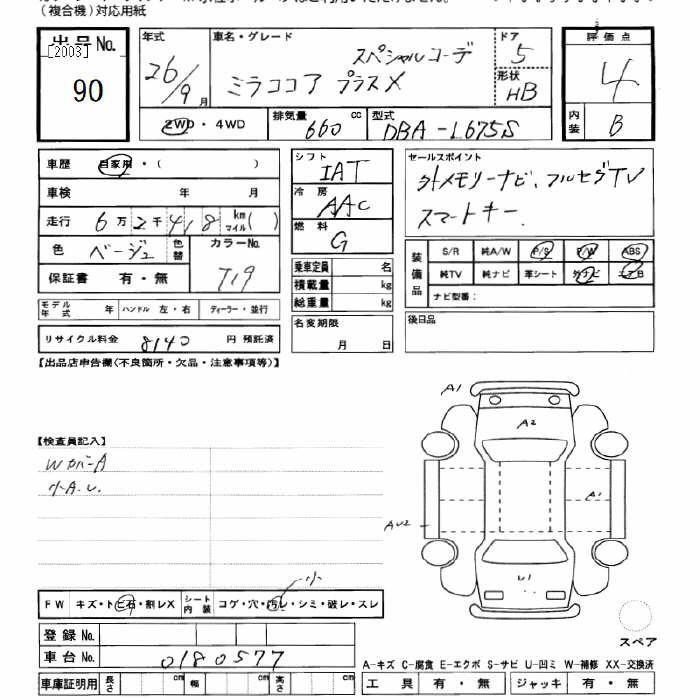 (複合機)対応用紙
出品No.
[2003]
90
年式
26/9月
車名・グレード
スペシャルコーデ
ミラココア プラスX
ドア
5
形状
HB
評価点
4
内装
B
2WD・4WD
排気量 660 cc
型式 DBA-L675S
車歴 自家用・( )
車検 年 月
走行 6万2千418 km マイル( )
色 ベージュ 色替
カラーNo. T19
保証書 有・無
モデル年式 年 ハンドル 左・右 ディーラー・並行
リサイクル料金 8140 円 預託済
シフト IAT
冷房 AAC
燃料 G
乗車定員 名
積載量 kg
総重量 kg
名変期限
月 日
セールスポイント
外メモリーナビ、フルセグTV
スマートキー.
装備品
S/R 純A/W P/S P/W ABS
純TV 純ナビ 革シート 外ナビ エアB
ナビ型番:
後日品
【出品店申告欄(不良箇所・欠品・注意事項等)】
【検査員記入】
WカバーA
小A.U.
A1
A2
A1
AU2
U1
小
FW キズ・トビ石・割レX
シート内装 コゲ・穴・汚レ・シミ・破レ・スレ
登録No.
車台No. 0180577
車庫証明用 長さ cm 幅 cm 高さ cm
スペア
A-キズ C-腐食 E-エクボ S-サビ U-凹ミ W-補修 XX-交換済
工具 有・無 ジャッキ 有・無